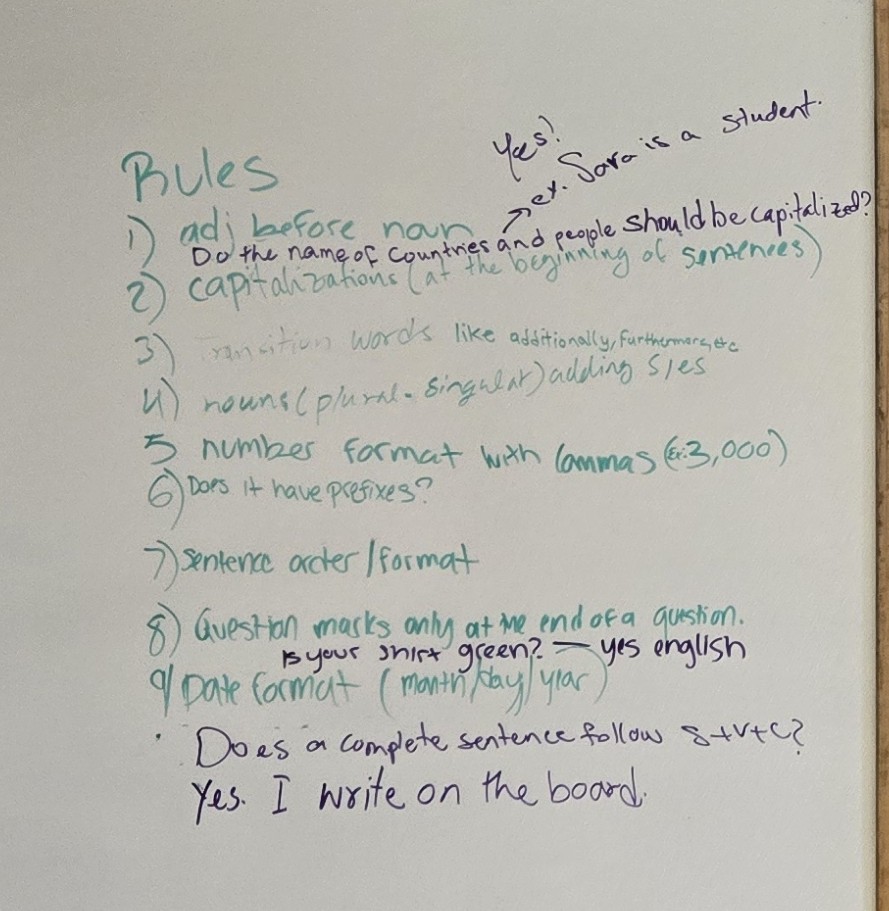 Yes!
ex. Sara is a student.
Rules
1) adj before noun
Do the name of countries and people should be capitalized?
2) capitalizations (at the beginning of sentences)
3) Transition words like additionally, Furthermore, etc
4) nouns (plural - singular) adding s/es
5 number format with commas (Ex: 3,000)
6) Does it have prefixes?
7) sentence order / format
8) Question marks only at the end of a question.
Is your shirt green? — yes english
9) Date format (month/day/year)
Does a complete sentence follow S+V+C?
Yes. I write on the board.